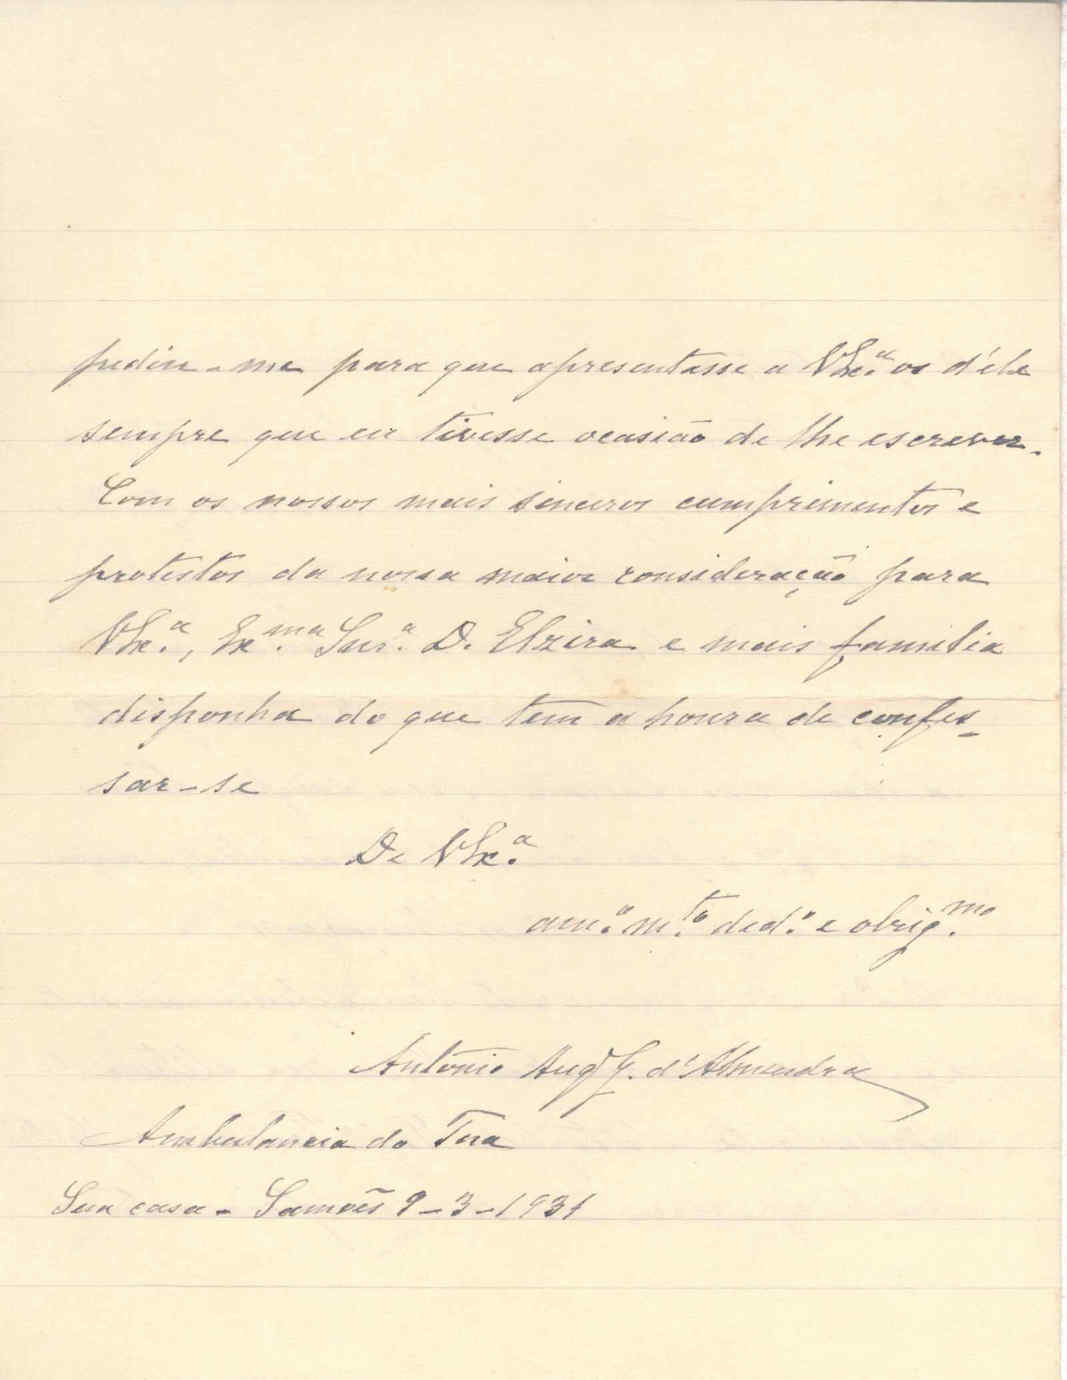 pediu-me para que apresentasse a V Ex.ª os d'éle
sempre que eu tivesse ocasião de lhe escrever.
Com os nossos mais sinceros cumprimentos e
protestos da nossa maior consideração para
V Ex.ª, Ex.ma Snr.ª D. Elzira e mais familia
disponha do que tem a honra de confes-
sar-se
De V Ex.ª
am.º m.to ded.º e obrig.mo
Antonio Aug.to d'Almendra
Ambulancia do Tua
Sua casa - Samões 9-3-1931